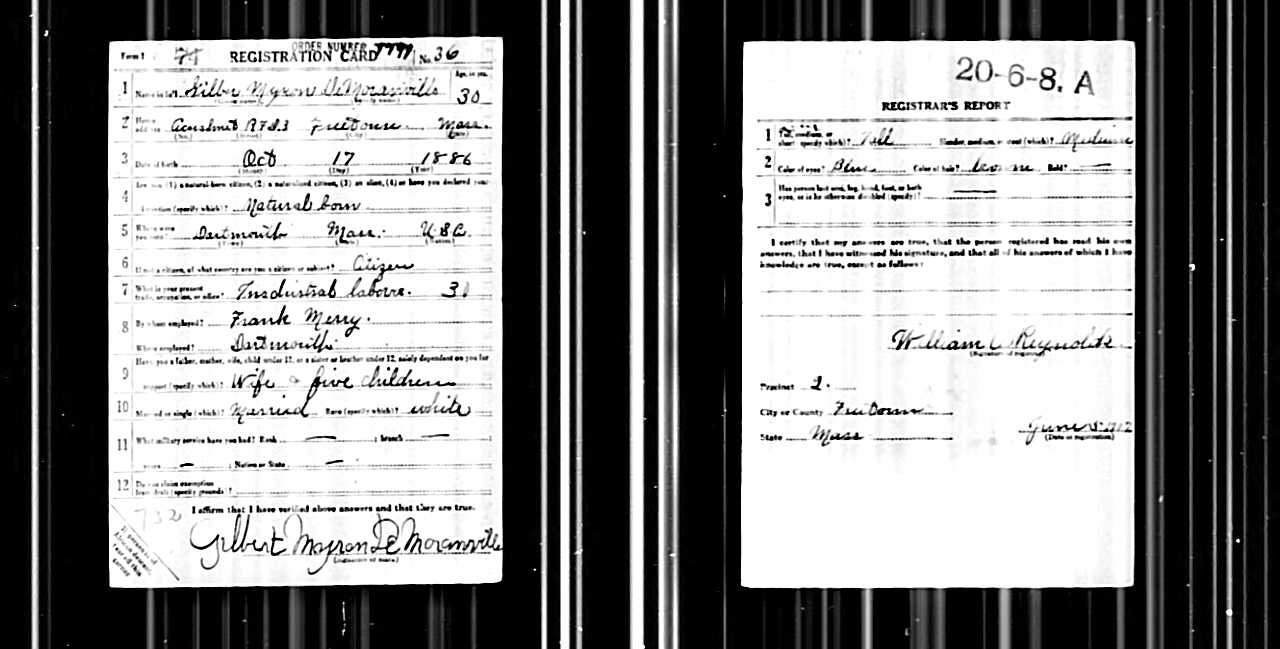 Form 1 ORDER NUMBER
REGISTRATION CARD No. 36
1 Name in full Gilbert Myron DeMoranville
(Given name) (Family name)
Age, in yrs. 30
2 Home address Acushnet R.F.D.3 Freetown Mass.
(No.) (Street) (City) (State)
3 Date of birth Oct 17 1886
(Month) (Day) (Year)
4 Are you (1) a natural-born citizen, (2) a naturalized citizen, (3) an alien, (4) or have you declared your
intention (specify which)? Natural born
5 Where were you born? Dartmouth Mass. U S A
(Town) (State) (Nation)
6 If not a citizen, of what country are you a citizen or subject? Citizen
7 What is your present trade, occupation, or office? Insdustral laborre. 31
8 By whom employed? Frank Merry.
Where employed? Dartmouth
9 Have you a father, mother, wife, child under 12, or a sister or brother under 12, solely dependent on you for
support (specify which)? Wife & five children
10 Married or single (which)? Married Race (specify which)? white
11 What military service have you had? Rank — ; branch — ;
years — ; Nation or State —
12 Do you claim exemption from draft (specify grounds)?
732
I affirm that I have verified above answers and that they are true.
Gilbert Myron De Moranville
(Signature or mark)
If person is of African descent, tear off this corner
20-6-8. A
REGISTRAR'S REPORT
1 Tall, medium, or short (specify which)? Tall Slender, medium, or stout (which)? Medium
2 Color of eyes? Blue Color of hair? brown Bald? —
3 Has person lost arm, leg, hand, foot, or both eyes, or is he otherwise disabled (specify)? —
I certify that my answers are true, that the person registered has read his own
answers, that I have witnessed his signature, and that all of his answers of which I have
knowledge are true, except as follows:
William C Reynolds
(Signature of registrar)
Precinct 2.
City or County Freetown
State Mass
June 5 1917
(Date of registration)